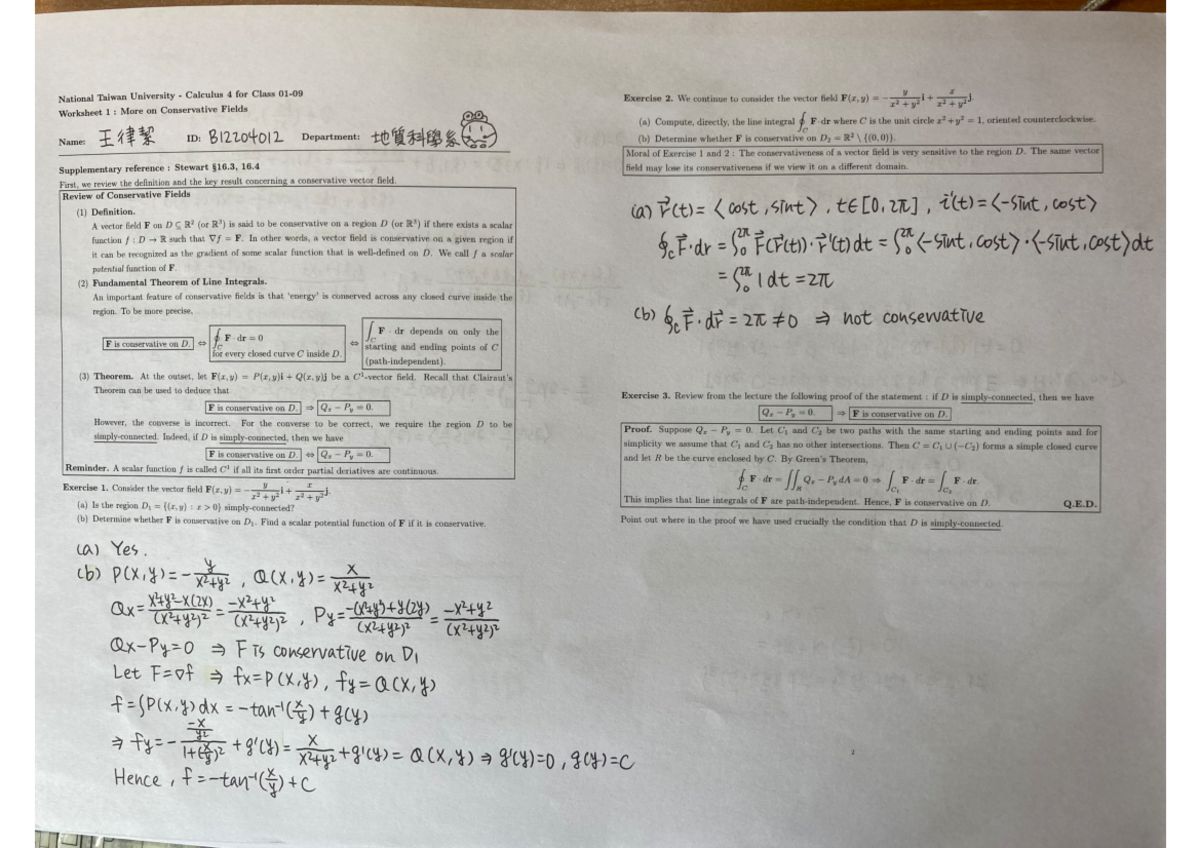 National Taiwan University - Calculus 4 for Class 01-09
Worksheet 1 : More on Conservative Fields
Name: 王律絜 ID: B12204012 Department: 地質科學系
Supplementary reference : Stewart §16.3, 16.4
First, we review the definition and the key result concerning a conservative vector field.
Review of Conservative Fields
(1) Definition.
A vector field F on D ⊆ R² (or R³) is said to be conservative on a region D (or R³) if there exists a scalar
function f : D → R such that ∇f = F. In other words, a vector field is conservative on a given region if
it can be recognized as the gradient of some scalar function that is well-defined on D. We call f a scalar
potential function of F.
(2) Fundamental Theorem of Line Integrals.
An important feature of conservative fields is that 'energy' is conserved across any closed curve inside the
region. To be more precise,
F is conservative on D. ⇔ ∮_C F · dr = 0 for every closed curve C inside D. ⇔ ∫_C F · dr depends on only the starting and ending points of C (path-independent).
(3) Theorem. At the outset, let F(x, y) = P(x, y)i + Q(x, y)j be a C¹-vector field. Recall that Clairaut's
Theorem can be used to deduce that
F is conservative on D. ⇒ Qx − Py = 0.
However, the converse is incorrect. For the converse to be correct, we require the region D to be
simply-connected. Indeed, if D is simply-connected, then we have
F is conservative on D. ⇔ Qx − Py = 0.
Reminder. A scalar function f is called C¹ if all its first order partial deriatives are continuous.
Exercise 1. Consider the vector field F(x, y) = −y/(x² + y²) i + x/(x² + y²) j.
(a) Is the region D₁ = {(x, y) : x > 0} simply-connected?
(b) Determine whether F is conservative on D₁. Find a scalar potential function of F if it is conservative.
(a) Yes.
(b) P(x,y) = −y/(x²+y²) , Q(x,y) = x/(x²+y²)
Qx = (x²+y²−x(2x))/(x²+y²)² = (−x²+y²)/(x²+y²)² , Py = (−(x²+y²)+y(2y))/(x²+y²)² = (−x²+y²)/(x²+y²)²
Qx−Py=0 ⇒ F is conservative on D₁
Let F=∇f ⇒ fx=P(x,y), fy=Q(x,y)
f=∫P(x,y)dx = −tan⁻¹(x/y) + g(y)
⇒ fy = −(−x/y²)/(1+(x/y)²) + g'(y) = x/(x²+y²) + g'(y) = Q(x,y) ⇒ g'(y)=0, g(y)=C
Hence, f=−tan⁻¹(x/y)+C
Exercise 2. We continue to consider the vector field F(x, y) = −y/(x² + y²) i + x/(x² + y²) j.
(a) Compute, directly, the line integral ∮_C F·dr where C is the unit circle x²+y² = 1, oriented counterclockwise.
(b) Determine whether F is conservative on D₂ = R² \ {(0, 0)}.
Moral of Exercise 1 and 2 : The conservativeness of a vector field is very sensitive to the region D. The same vector
field may lose its conservativeness if we view it on a different domain.
(a) r⃗(t) = ⟨cost, sint⟩, t∈[0, 2π], r⃗'(t) = ⟨−sint, cost⟩
∮_C F⃗·dr = ∫₀^2π F⃗(r⃗(t))·r⃗'(t)dt = ∫₀^2π ⟨−sint, cost⟩·⟨−sint, cost⟩dt
= ∫₀^2π 1dt = 2π
(b) ∮_C F⃗·dr⃗ = 2π ≠ 0 ⇒ not conservative
Exercise 3. Review from the lecture the following proof of the statement : if D is simply-connected, then we have
Qx − Py = 0. ⇒ F is conservative on D.
Proof. Suppose Qx − Py = 0. Let C₁ and C₂ be two paths with the same starting and ending points and for
simplicity we assume that C₁ and C₂ has no other intersections. Then C = C₁ ∪ (−C₂) forms a simple closed curve
and let R be the curve enclosed by C. By Green's Theorem,
∮_C F · dr = ∬_R Qx − Py dA = 0 ⇒ ∫_C₁ F · dr = ∫_C₂ F · dr.
This implies that line integrals of F are path-independent. Hence, F is conservative on D. Q.E.D.
Point out where in the proof we have used crucially the condition that D is simply-connected.
2